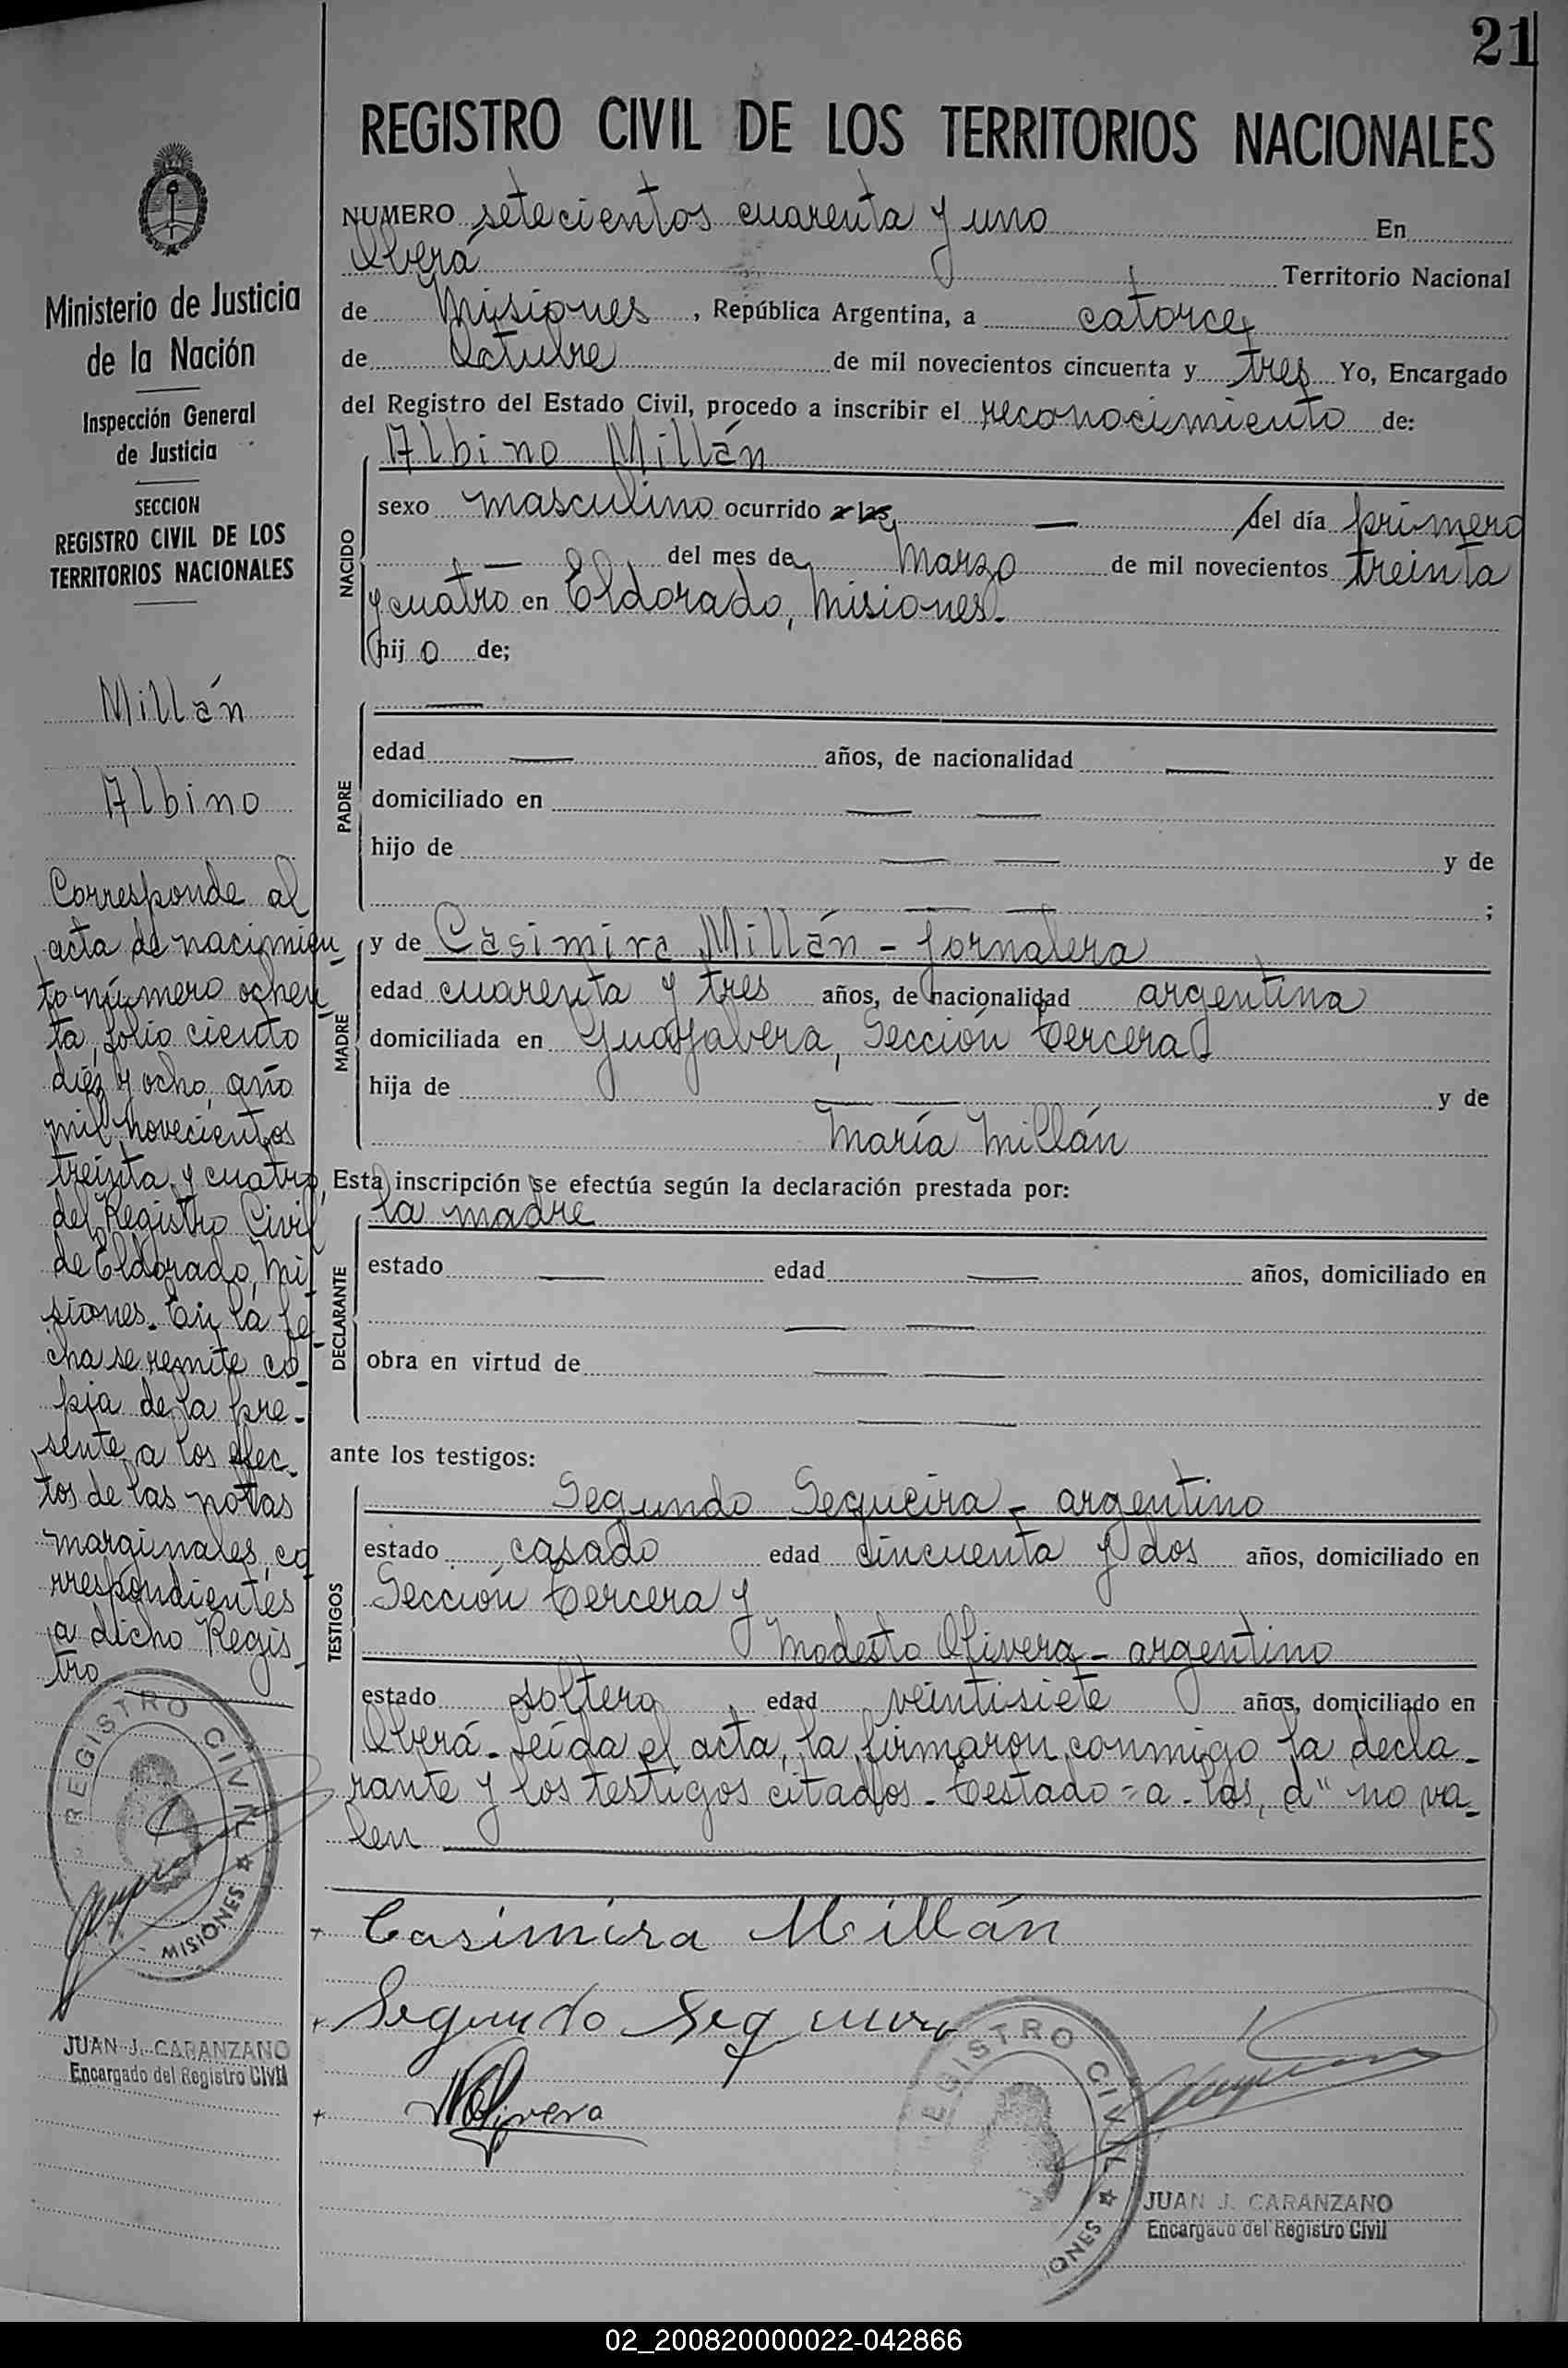 21
REGISTRO CIVIL DE LOS TERRITORIOS NACIONALES
NUMERO setecientos cuarenta y uno En
Oberá Territorio Nacional
de Misiones, República Argentina, a catorce
de Octubre de mil novecientos cincuenta y tres Yo, Encargado
del Registro del Estado Civil, procedo a inscribir el reconocimiento de:
Albino Millán
NACIDO
sexo masculino ocurrido a las — del día primero
— del mes de Marzo de mil novecientos treinta
y cuatro en Eldorado, Misiones.
hijo de;
PADRE
—
edad — años, de nacionalidad —
domiciliado en — —
hijo de — — y de
— — ;
MADRE
y de Casimira Millán - jornalera
edad cuarenta y tres años, de nacionalidad argentina
domiciliada en Guayabera, Sección tercera
hija de — — y de
María Millán
Esta inscripción se efectúa según la declaración prestada por:
DECLARANTE
la madre
estado — edad — años, domiciliado en
— —
obra en virtud de — —
— —
ante los testigos:
TESTIGOS
Segundo Sequeira - argentino
estado casado edad cincuenta y dos años, domiciliado en
Sección tercera y
Modesto Olivera - argentino
estado soltero, edad veintisiete años, domiciliado en
Oberá. Leída el acta, la firmaron conmigo la decla-
rante y los testigos citados. Testado = a - las, d" no va-
len
Casimira Millán
Segundo Sequeira
MOlivera
REGISTRO CIVIL
JUAN J. CARANZANO
Encargado del Registro Civil
Ministerio de Justicia
de la Nación
Inspección General
de Justicia
SECCION
REGISTRO CIVIL DE LOS
TERRITORIOS NACIONALES
Millán
Albino
Corresponde al
acta de nacimien-
to número ochen-
ta, folio ciento
diez y ocho, año
mil novecientos
treinta y cuatro,
del Registro Civil
de Eldorado, Mi
siones. En la fe-
cha se remite co-
pia de la pre-
sente a los efec-
tos de las notas
marginales co
rrespondientes
a dicho Regis-
tro
REGISTRO CIVIL
MISIONES
JUAN J. CARANZANO
Encargado del Registro Civil
02_200820000022-042866